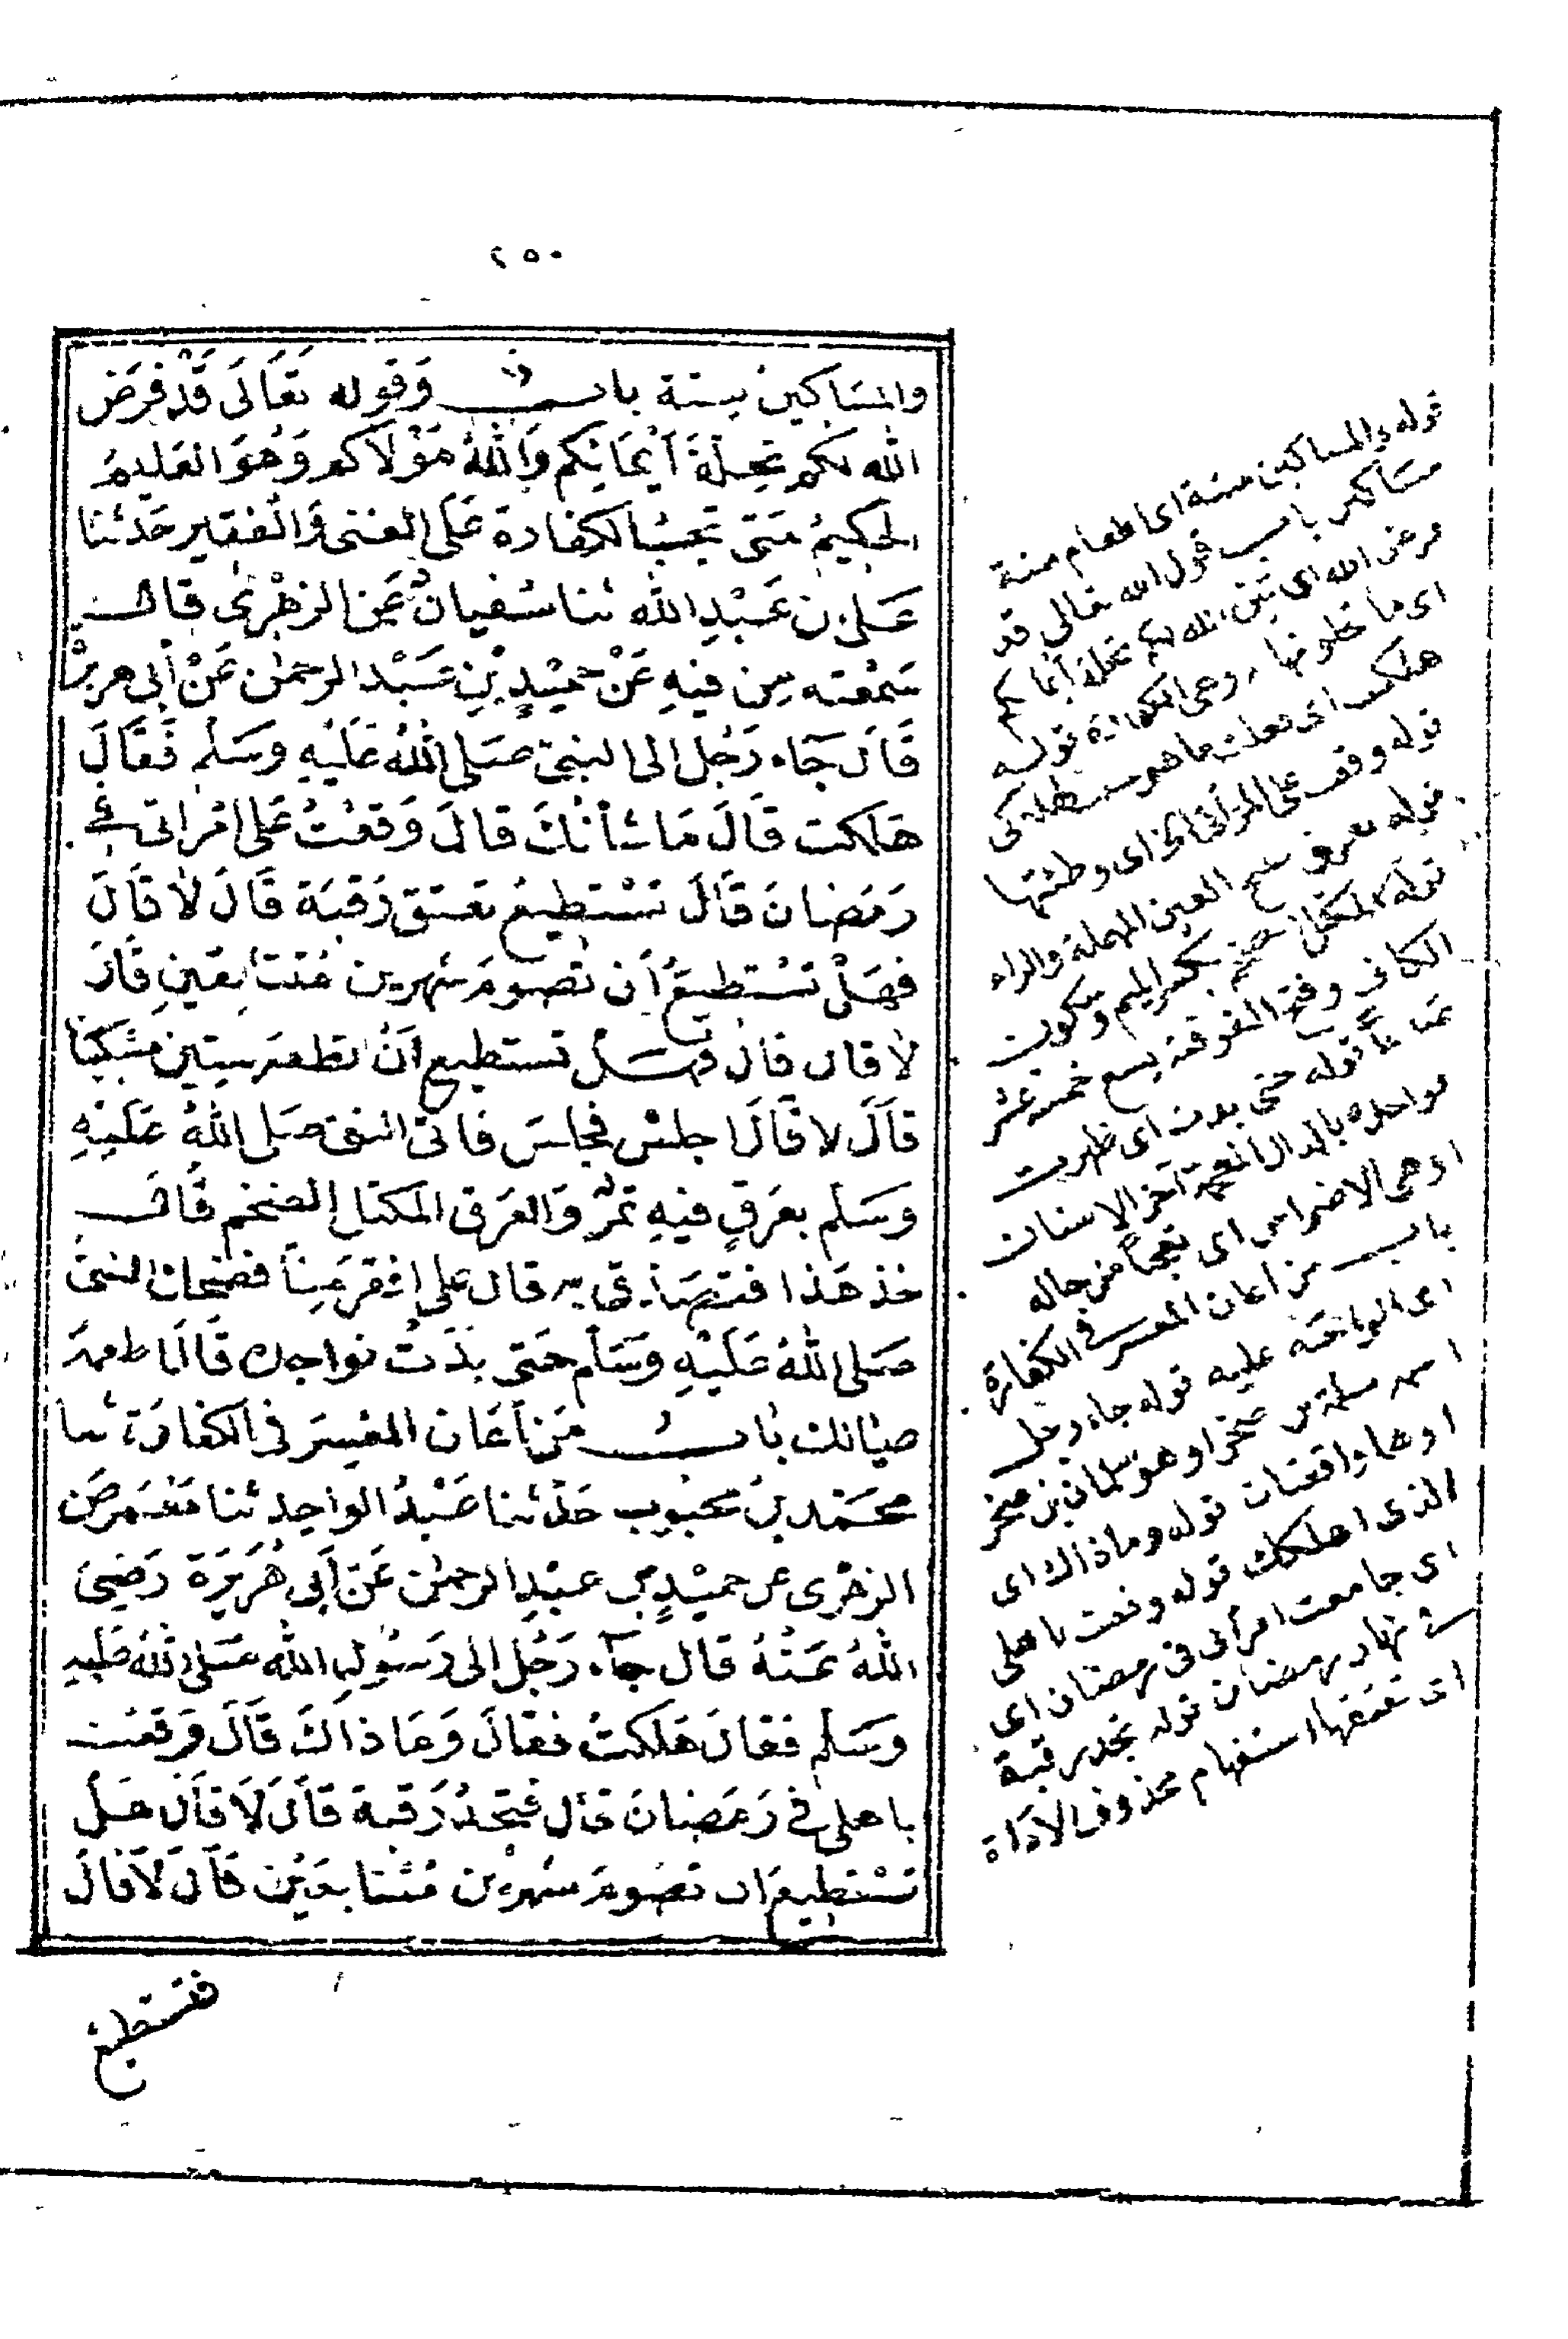 ٢٥٠
والمساكين ستة باب وقوله تعالى قد فرض
الله لكم تحلة أيمانكم والله مولاكم وهو العليم
الحكيم متى تجب الكفارة على الغنى والفقير حدثنا
على بن عبد الله ثنا سفيان عن الزهرى قال
سمعته من فيه عن حميد بن عبد الرحمن عن أبى هريرة
قال جاء رجل الى النبى صلى الله عليه وسلم فقال
هلكت قال ما شأنك قال وقعت على امرأتى فى
رمضان قال تستطيع تعتق رقبة قال لا قال
فهل تستطيع أن تصوم شهرين متتابعين قال
لا قال قال فهل تستطيع أن تطعم ستين مسكينا
قال لا قال اجلس فجلس فاتى النبى صلى الله عليه
وسلم بعرق فيه تمر والعرق المكتل الضخم قال
خذ هذا فتصدق به قال على افقر منا فضحك النبى
صلى الله عليه وسلم حتى بدت نواجذه قال اطعمه
عيالك باب من أعان المعسر فى الكفارة ثنا
محمد بن محبوب حدثنا عبد الواحد ثنا معمر عن
الزهرى عن حميد بن عبد الرحمن عن أبى هريرة رضى
الله عنه قال جاء رجل الى رسول الله صلى الله عليه
وسلم فقال هلكت فقال وما ذاك قال وقعت
باهلى فى رمضان قال فتجد رقبة قال لا قال هل
تستطيع ان تصوم شهرين متتابعين قال لا قال
فتستطيع
قوله والمساكين ستة اى اطعام ستة
مساكين باب قول الله تعالى قد
فرض الله اى بين الله لكم تحلة أيمانكم
اى ما تحلونها وهى الكفارة قوله
هلكت اى فعلت ما هو سبب هلاكى
قوله وقعت على امرأتى اى وطئتها
قوله بعرق بفتح العين المهملة والراء
قوله المكتل الضخم بكسر الميم وسكون
الكاف وفتح الفوقية يسع خمسة عشر
صاعا قوله حتى بدت اى ظهرت
نواجذه بالذال المعجمة آخر الاسنان
اوهى الاضراس اى تعجبا من حاله
باب من اعان المعسر فى الكفارة
اى الواجبة عليه قوله جاء رجل
اسمه سلمة بن صخر او هو سلمان بن صخر
اوهما واقعتان قوله وما ذاك اى
الذى اهلكك قوله وقعت باهلى
اى جامعت امرأتى فى رمضان اى
فى نهار رمضان قوله تجد رقبة
اى تعتقها استفهام محذوف الاداة